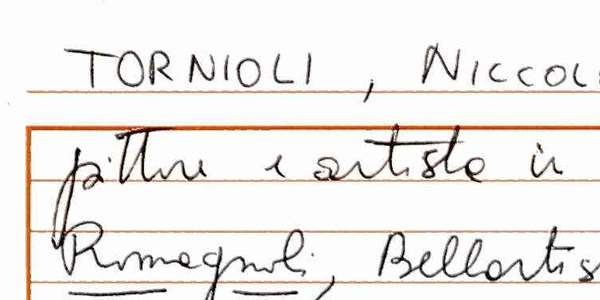 TORNIOLI, NICCOL
pittore e artista in
Romagnoli, Bellartis